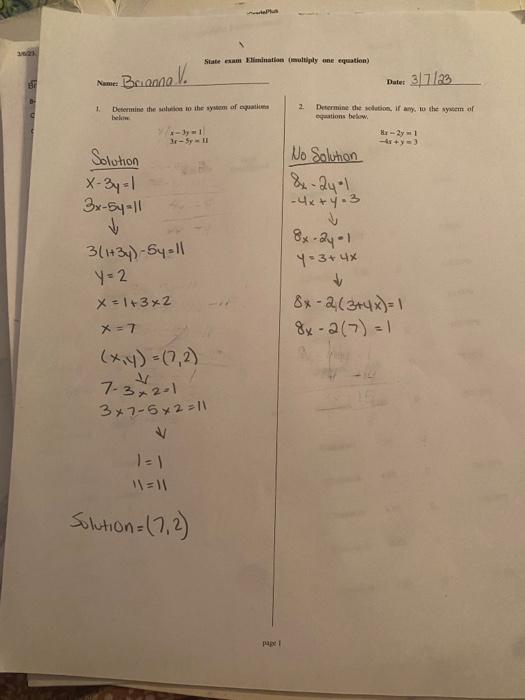 State exam Elimination (multiply one equation)
Name: Brianna V.
Date: 3/7/23
1. Determine the solution to the system of equations
below.
x − 3y = 1
3x − 5y = 11
Solution
x-3y=1
3x-5y=11
↓
3(1+3y)-5y=11
y=2
x=1+3×2
x=7
(x,y)=(7,2)
↓
7-3×2=1
3×7-5×2=11
↓
1=1
11=11
Solution=(7,2)
2. Determine the solution, if any, to the system of
equations below.
8x − 2y = 1
−4x + y = 3
No Solution
8x-2y=1
-4x+y=3
↓
8x-2y=1
y=3+4x
↓
8x-2(3+4x)=1
8x-2(7)=1
page 1